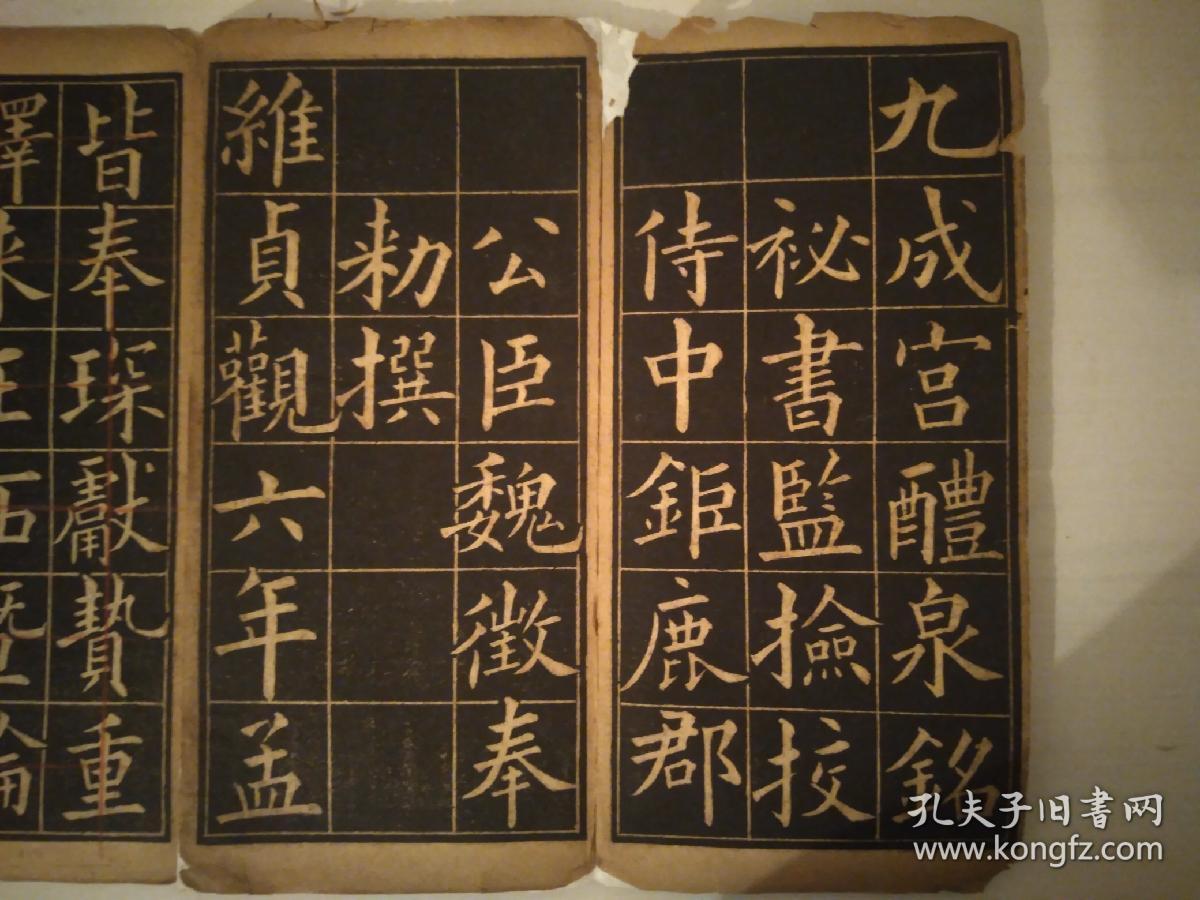 九成宮醴泉銘
祕書監撿挍
侍中鉅鹿郡
公臣魏徵奉
勑撰
維貞觀六年孟
皆奉琛獻贄重
孔夫子旧书网
www.kongfz.com